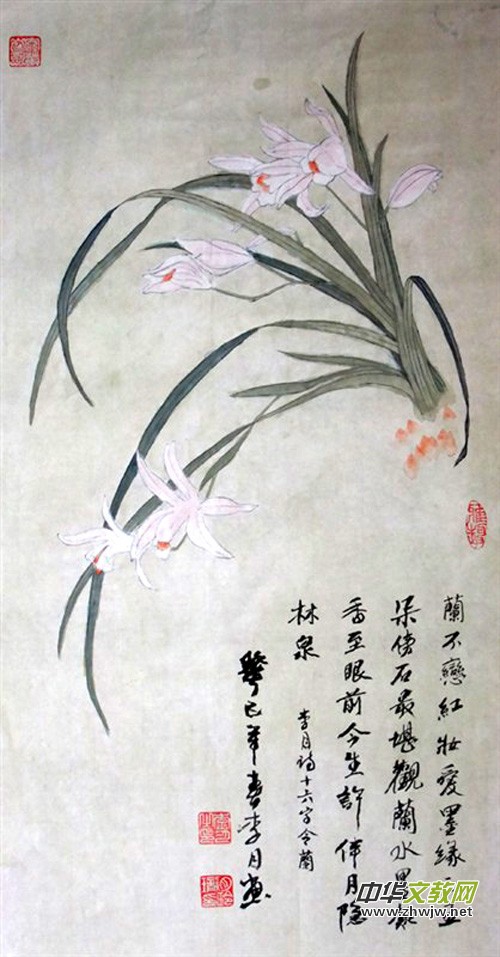 蘭不戀紅妝愛墨緣三五
朵傍石最堪觀蘭水墨
香至眼前今生許伴月隱
林泉
李月詩十六字令蘭
癸巳年春李月畫
中华文教网
www.zhwjw.net